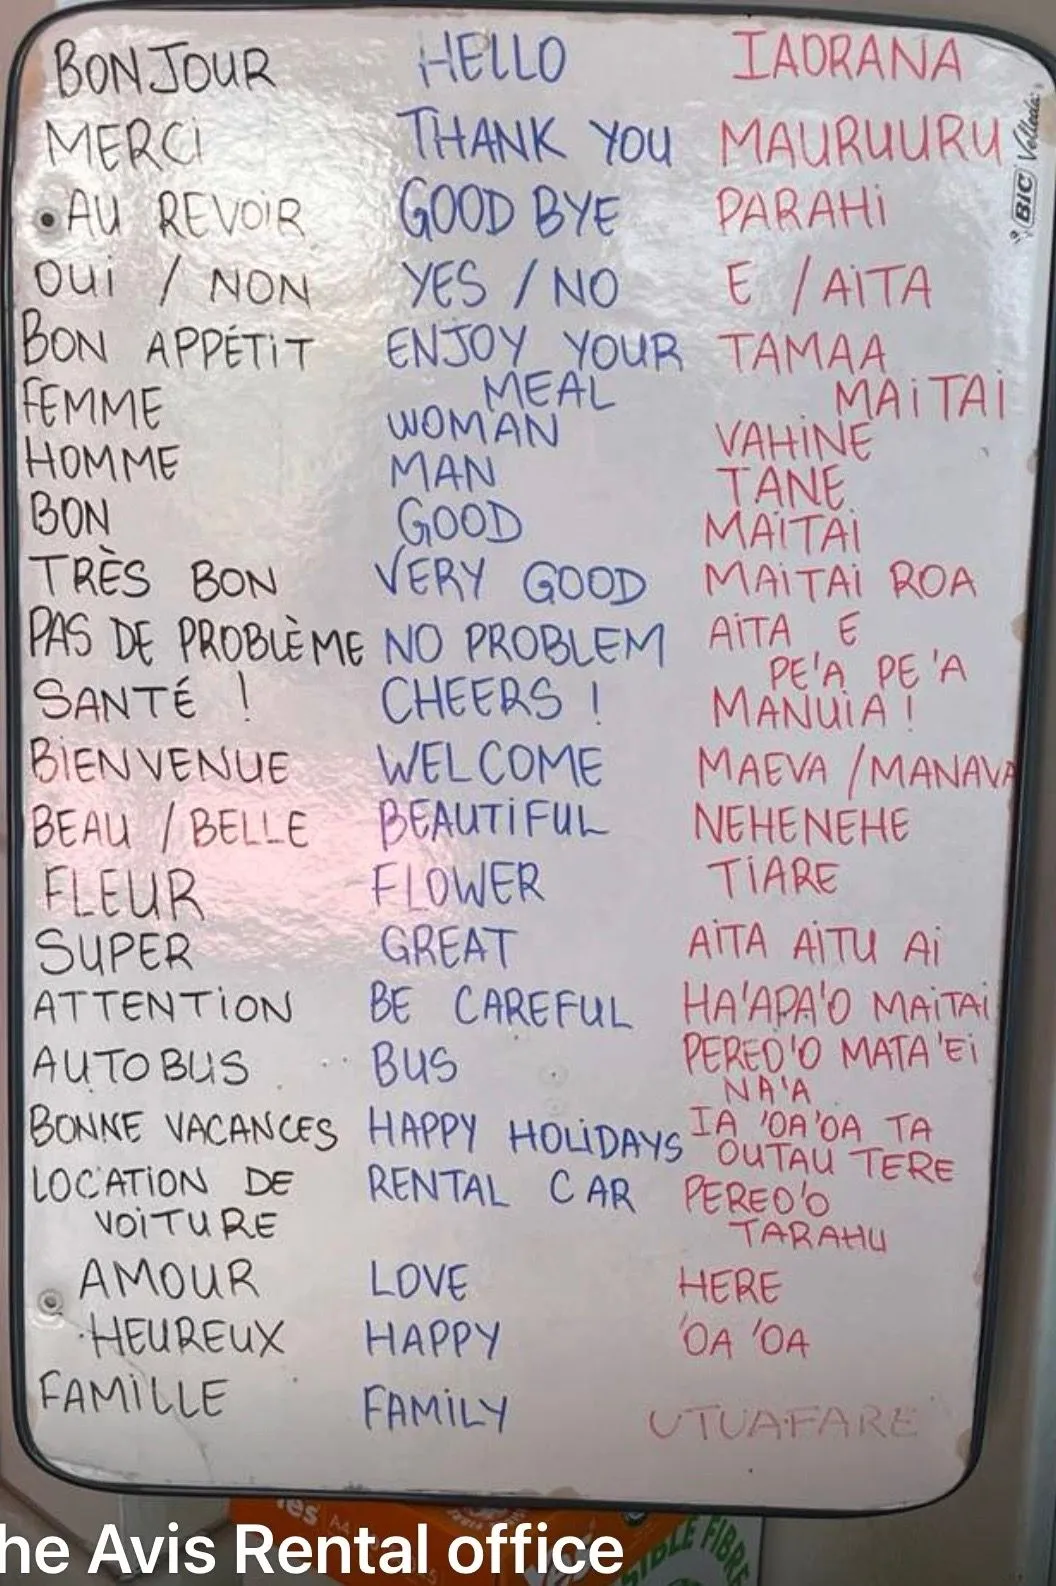 BONJOUR HELLO IAORANA
MERCI THANK YOU MAURUURU
AU REVOIR GOOD BYE PARAHI
OUI / NON YES / NO E / AÏTA
BON APPÉTIT ENJOY YOUR MEAL TAMAA MAITAI
FEMME WOMAN VAHINE
HOMME MAN TANE
BON GOOD MAITAI
TRÈS BON VERY GOOD MAITAI ROA
PAS DE PROBLÈME NO PROBLEM AITA E PE'A PE'A
SANTÉ ! CHEERS ! MANUIA !
BIENVENUE WELCOME MAEVA / MANAVA
BEAU / BELLE BEAUTIFUL NEHENEHE
FLEUR FLOWER TIARE
SUPER GREAT AITA AITU AI
ATTENTION BE CAREFUL HA'APA'O MAITAI
AUTOBUS BUS PEREO'O MATA'EI NA'A
BONNE VACANCES HAPPY HOLIDAYS IA 'OA'OA TA OUTAU TERE
LOCATION DE VOITURE RENTAL CAR PEREO'O TARAHU
AMOUR LOVE HERE
HEUREUX HAPPY 'OA 'OA
FAMILLE FAMILY UTUAFARE
BIC Velleda
he Avis Rental office